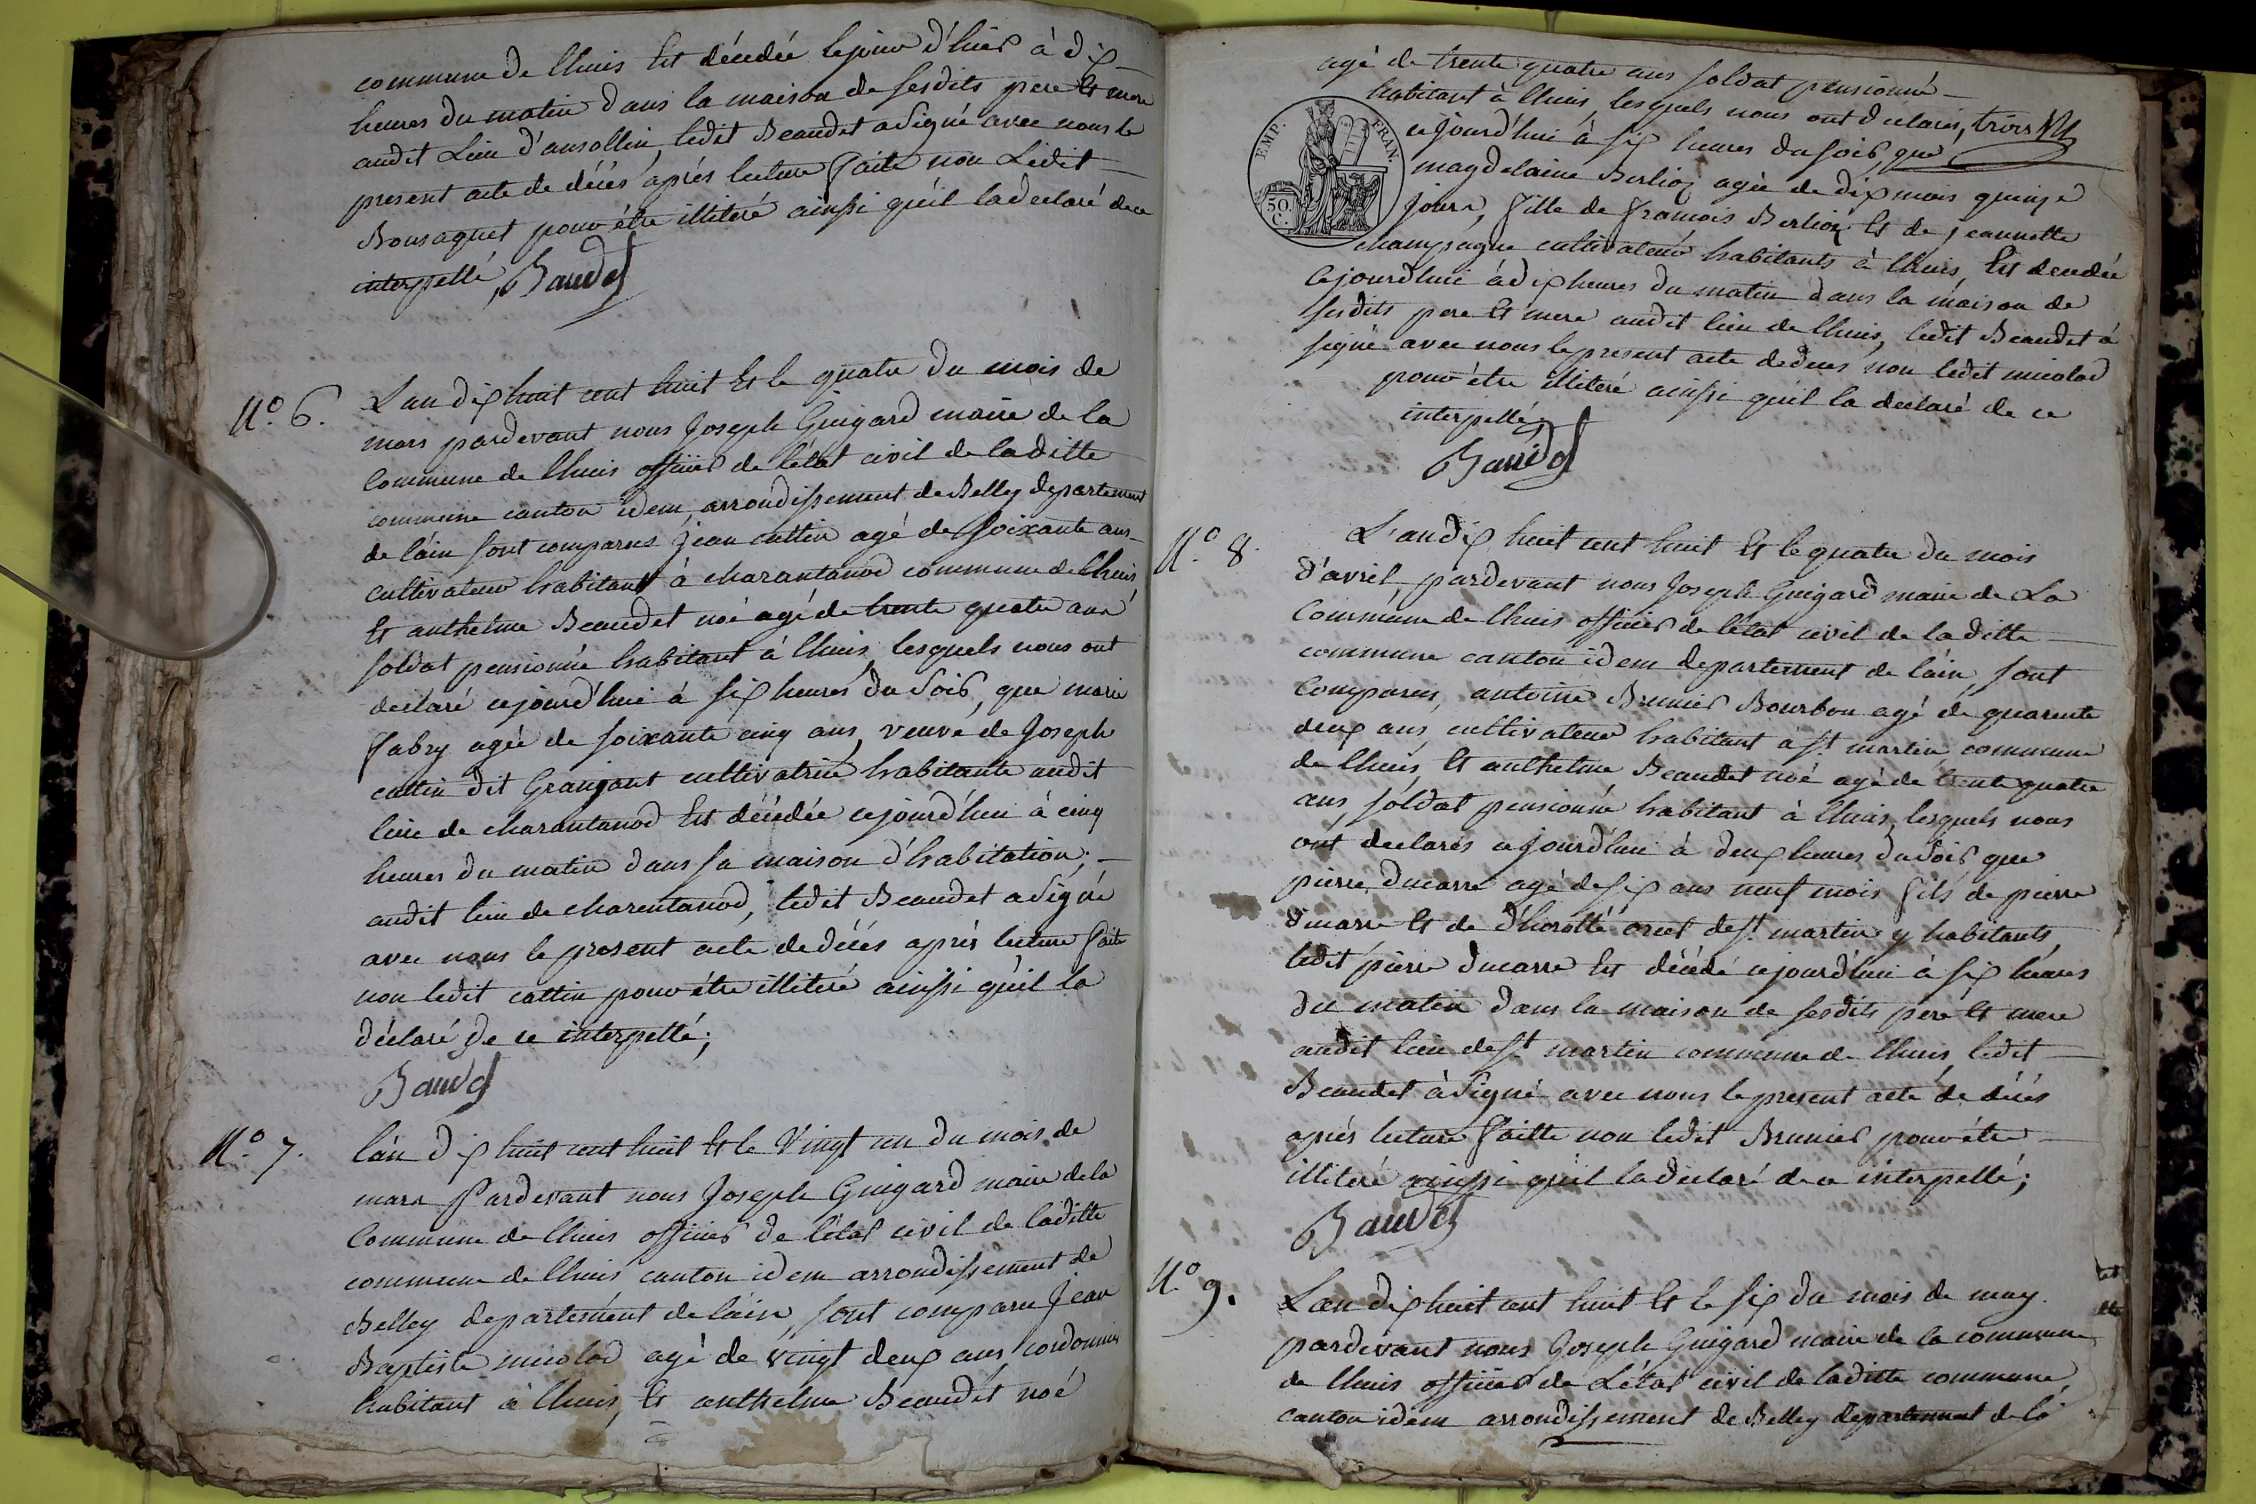 commune de lhuis Est décédée lejour d'hier à dix
heures du matin dans la maison de sesdits pere Et mere
audit Lieu d'ansollin, ledit Beaudet a Signé avec nous le
present acte de décés aprés lecture faite non Ledit
Bousaquet pour être illiteré ainssi qu'il la declaré de ce
interpellé, Baudet
N.o 6. L'an dix huit cent huit Et le quatre du mois de
mars pardevant nous Joseph Guigard maire de la
Commune de lhuis officier de l'état civil de laditte
commune canton idem, arrondissement de Belley departement
de l'ain sont comparus jean cattin agé de soixante ans
cultivateur habitant à charantanod commune de lhuis,
Et anthelme Beaudet noé agé de trente quatre ans
soldat pensionné habitant à lhuis, lesquels nous ont
declaré cejourd'hui à six heures du Soir, que marie
fabry agée de soixante cinq ans, veuve de Joseph
cattin dit Granjant cultivatrice habitante audit
lieu de charantanod Est décédée cejourd'hui à cinq
heures du matin dans sa maison d'habitation;
audit lieu de charentanod, ledit Beaudet a Signé
avec nous le present acte de décés aprés lecture faite
non ledit cattin pour être illiteré ainssi qu'il la
déclaré de ce interpellé;
Baudet
N.o 7. l'an dix huit cent huit Et le Vingt un du mois de
mars Pardevant nous Joseph Guigard maire de la
Commune de lhuis officier de l'état civil de laditte
commune de lhuis canton idem arrondissement de
Belley departement de l'ain, sont comparu Jean
Baptiste micolod agé de vingt deux ans cordonnier
habitant à lhuis, Et anthelme Beaudet noé
agé de trente quatre ans soldat pensionné
habitant à lhuis, lesquels nous ont declarés, trois
EMP. FRAN.
50 C.
cejourd'hui à six heures du soir, que
magdelaine Berlioz agée de dix mois quinze
jours, fille de francois Berlioz Et de jeannette
champagne cultivateur habitants à lhuis, Est decedée
cejourdhui à dix heures du matin dans la maison de
sesdits pere Et mere audit lieu de lhuis, ledit Beaudet à
signé avec nous le present acte de deces non ledit micolod
pour être illiteré ainssi qu'il la declaré de ce
interpellé,
Baudet
N.o 8. L'an dix huit cent huit Et le quatre du mois
d'avril, pardevant nous Joseph Guigard maire de La
Commune de lhuis officier de l'état civil de la ditte
commune canton idem departement de l'ain sont
Comparus, antoine Brunier Bourbon agé de quarente
deux ans, cultivateur habitant à st. martin commune
de lhuis, Et anthelme Beaudet noé agé de trente quatre
ans, soldat pensionné habitant à lhuis, lesquels nous
ont declarés cejourdhui à deux heures du Soir, que
pierre, ducarre agé de six ans neuf mois fils de pierre
ducarre Et de d'horotté orcet de st. martin y habitants,
ledit pierre ducarre Est décédé cejourd'hui à six heures
du matin dans la maison de sesdits pere Et mere
audit lieu de st. martin commune de lhuis, ledit
Beaudet à Signé avec nous le present acte de décés
aprés lecture faitte non ledit Brunier pour être
illiteré ainssi qu'il la declaré de ce interpellé;
Baudet
N.o 9. L'an dix huit cent huit Et le six du mois de may
pardevant nous Joseph Guigard maire de la commune
de lhuis officier de L'état civil de laditte commune,
canton idem arrondissement de Belley departement de l'a